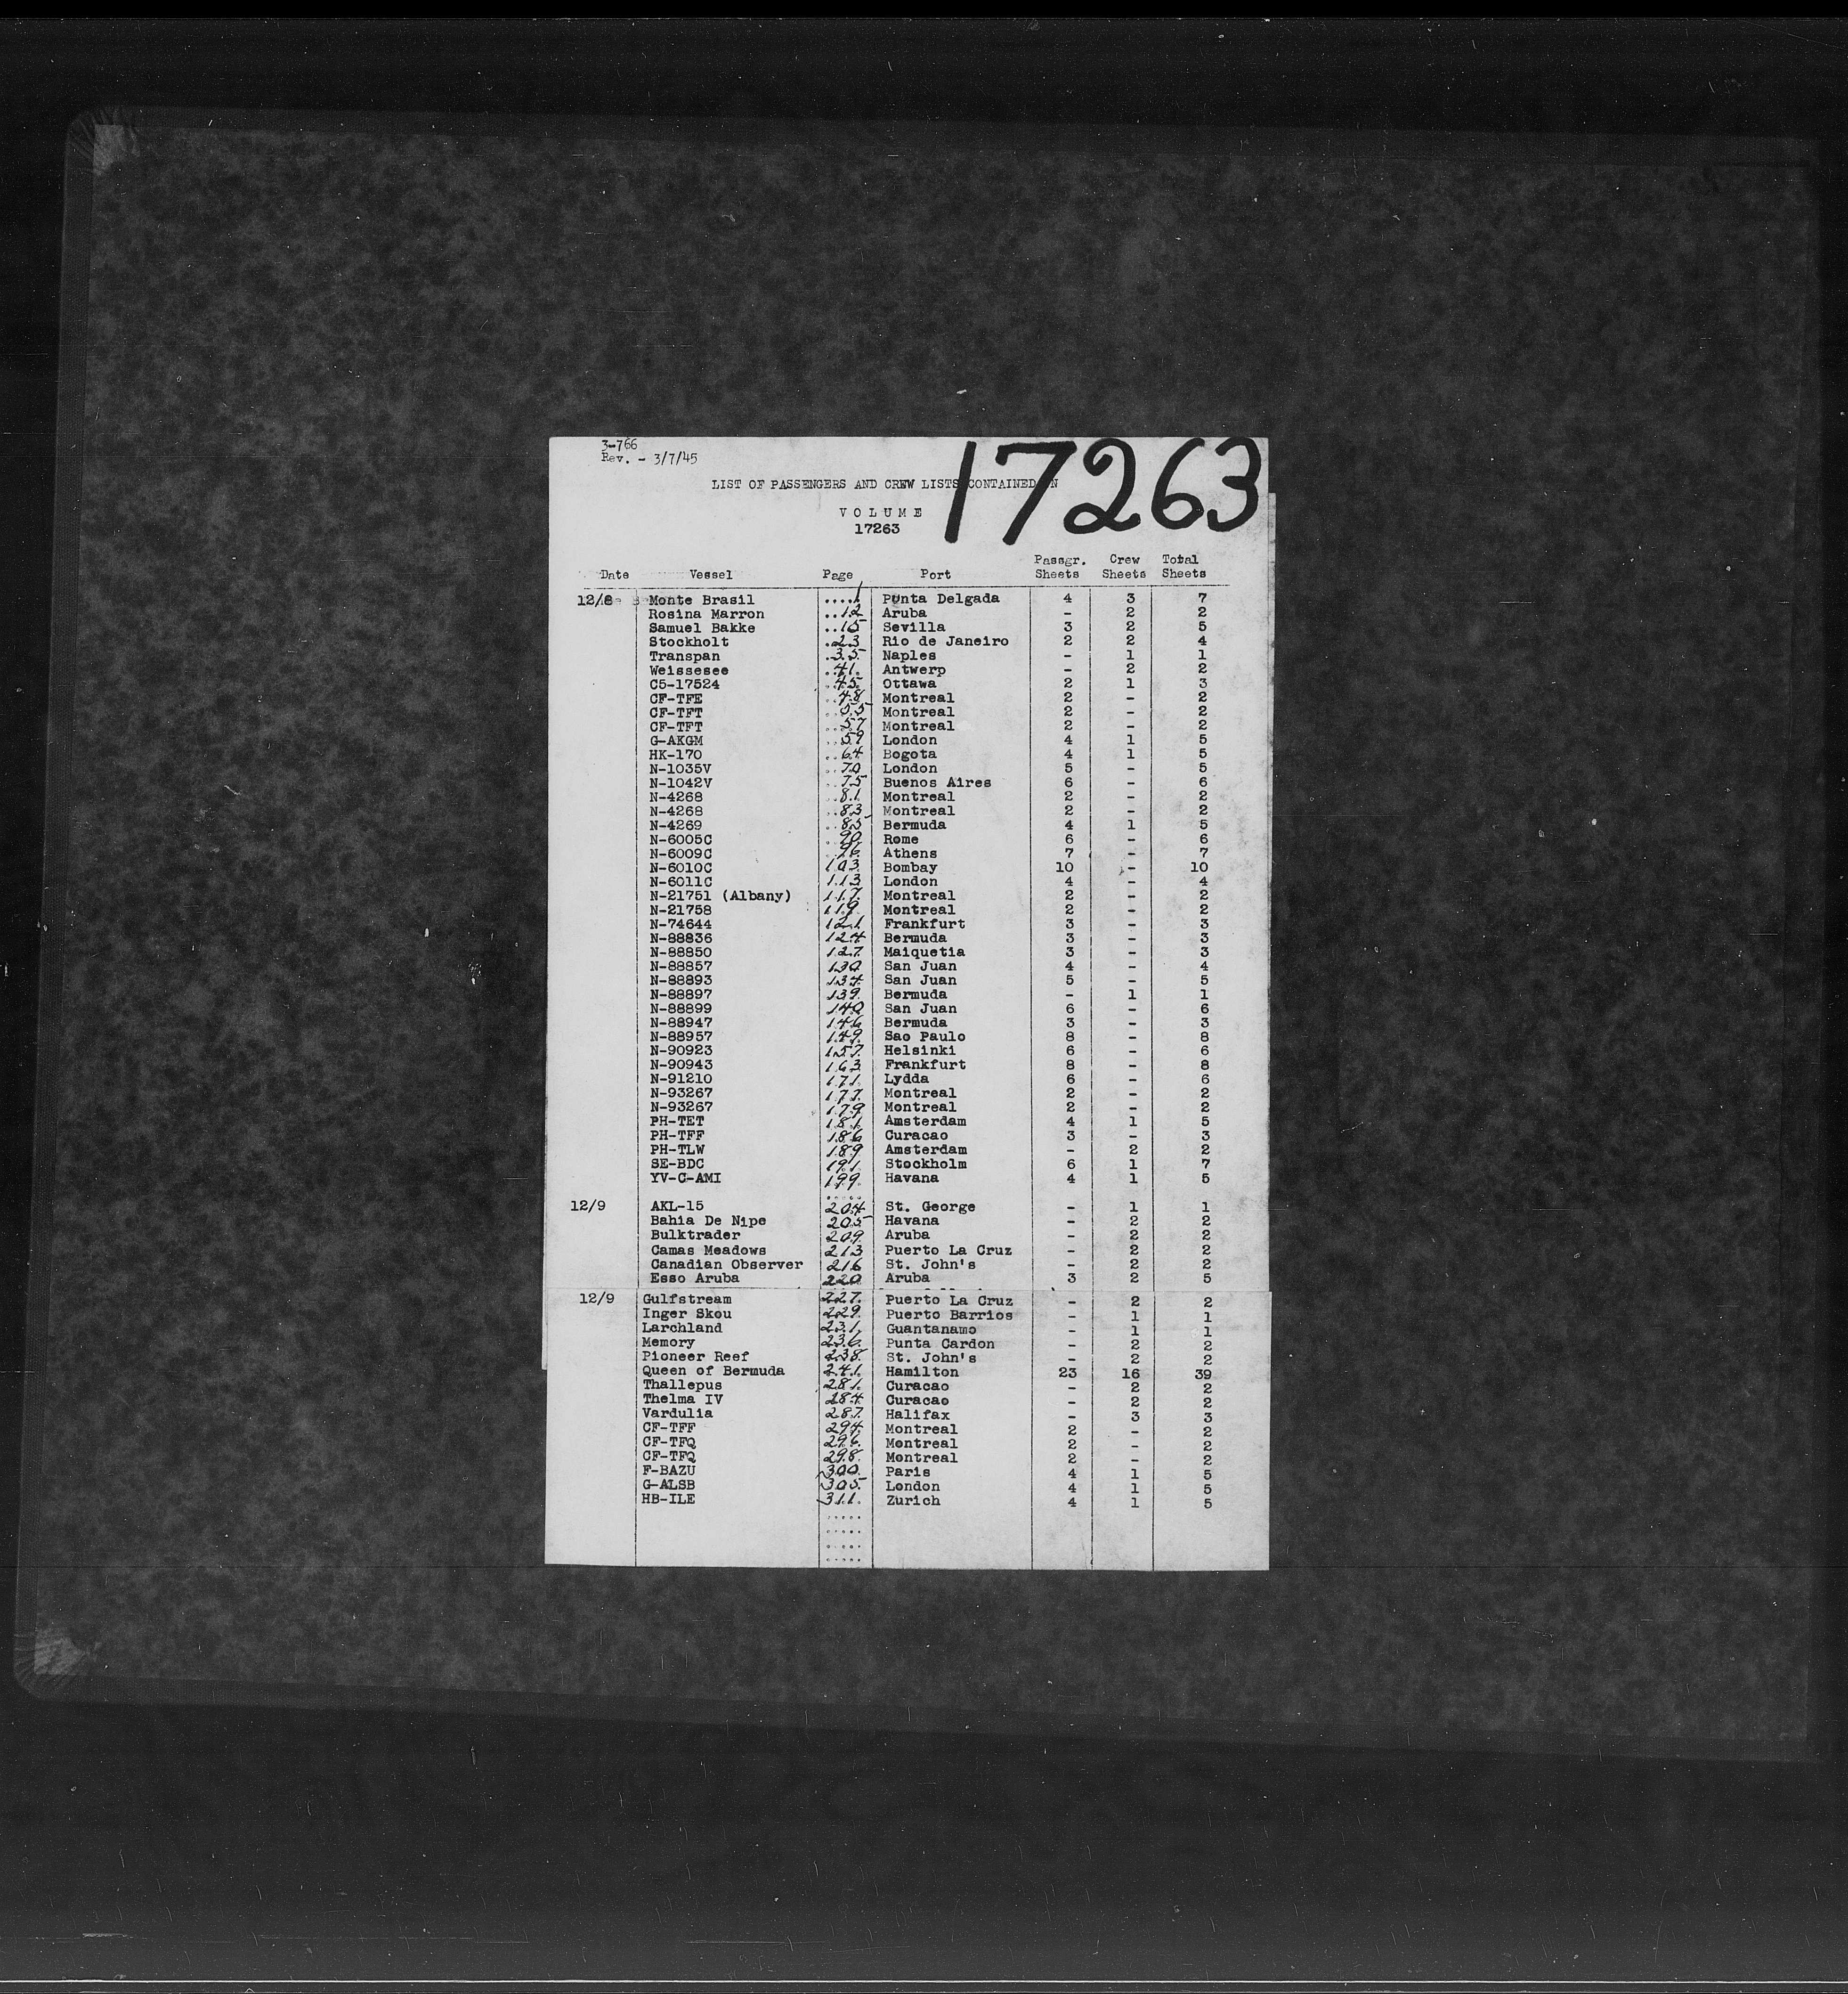 3-766
Rev. - 3/7/45
17263
LIST OF PASSENGERS AND CREW LISTS CONTAINED IN
VOLUME
17263
Date Vessel Page Port Passgr. Sheets Crew Sheets Total Sheets
12/8 Monte Brasil ....1 Punta Delgada 4 3 7
Rosina Marron ..12 Aruba - 2 2
Samuel Bakke ..15 Sevilla 3 2 5
Stockholt .23 Rio de Janeiro 2 2 4
Transpan .35. Naples - 1 1
Weissesee .41. Antwerp - 2 2
C5-17524 ..45. Ottawa 2 1 3
CF-TFE ..48 Montreal 2 - 2
CF-TFT ..55 Montreal 2 - 2
CF-TFT ..57 Montreal 2 - 2
G-AKGM ..59 London 4 1 5
HK-170 ..64 Bogota 4 1 5
N-1035V ..70 London 5 - 5
N-1042V ..75 Buenos Aires 6 - 6
N-4268 ..81. Montreal 2 - 2
N-4268 ..83 Montreal 2 - 2
N-4269 ..85 Bermuda 4 1 5
N-6005C ..90 Rome 6 - 6
N-6009C .96. Athens 7 - 7
N-6010C 103. Bombay 10 - 10
N-6011C 113 London 4 - 4
N-21751 (Albany) 117. Montreal 2 - 2
N-21758 119. Montreal 2 - 2
N-74644 121 Frankfurt 3 - 3
N-88836 124 Bermuda 3 - 3
N-88850 127. Maiquetia 3 - 3
N-88857 130 San Juan 4 - 4
N-88893 134. San Juan 5 - 5
N-88897 139. Bermuda - 1 1
N-88899 140 San Juan 6 - 6
N-88947 146 Bermuda 3 - 3
N-88957 149. Sao Paulo 8 - 8
N-90923 157. Helsinki 6 - 6
N-90943 163 Frankfurt 8 - 8
N-91210 171. Lydda 6 - 6
N-93267 177. Montreal 2 - 2
N-93267 179 Montreal 2 - 2
PH-TET 181. Amsterdam 4 1 5
PH-TFF 186 Curacao 3 - 3
PH-TLW 189 Amsterdam - 2 2
SE-BDC 191. Stockholm 6 1 7
YV-C-AMI 199. Havana 4 1 5
12/9 AKL-15 204 St. George - 1 1
Bahia De Nipe 205 Havana - 2 2
Bulktrader 209. Aruba - 2 2
Camas Meadows 213 Puerto La Cruz - 2 2
Canadian Observer 216 St. John's - 2 2
Esso Aruba 220. Aruba 3 2 5
12/9 Gulfstream 227. Puerto La Cruz - 2 2
Inger Skou 229. Puerto Barrios - 1 1
Larchland 231. Guantanamo - 1 1
Memory 236. Punta Cardon - 2 2
Pioneer Reef 238. St. John's - 2 2
Queen of Bermuda 241. Hamilton 23 16 39
Thallepus 281. Curacao - 2 2
Thelma IV 284 Curacao - 2 2
Vardulia 287. Halifax - 3 3
CF-TFF 294. Montreal 2 - 2
CF-TFQ 296. Montreal 2 - 2
CF-TFQ 298. Montreal 2 - 2
F-BAZU 300. Paris 4 1 5
G-ALSB 305. London 4 1 5
HB-ILE 311. Zurich 4 1 5